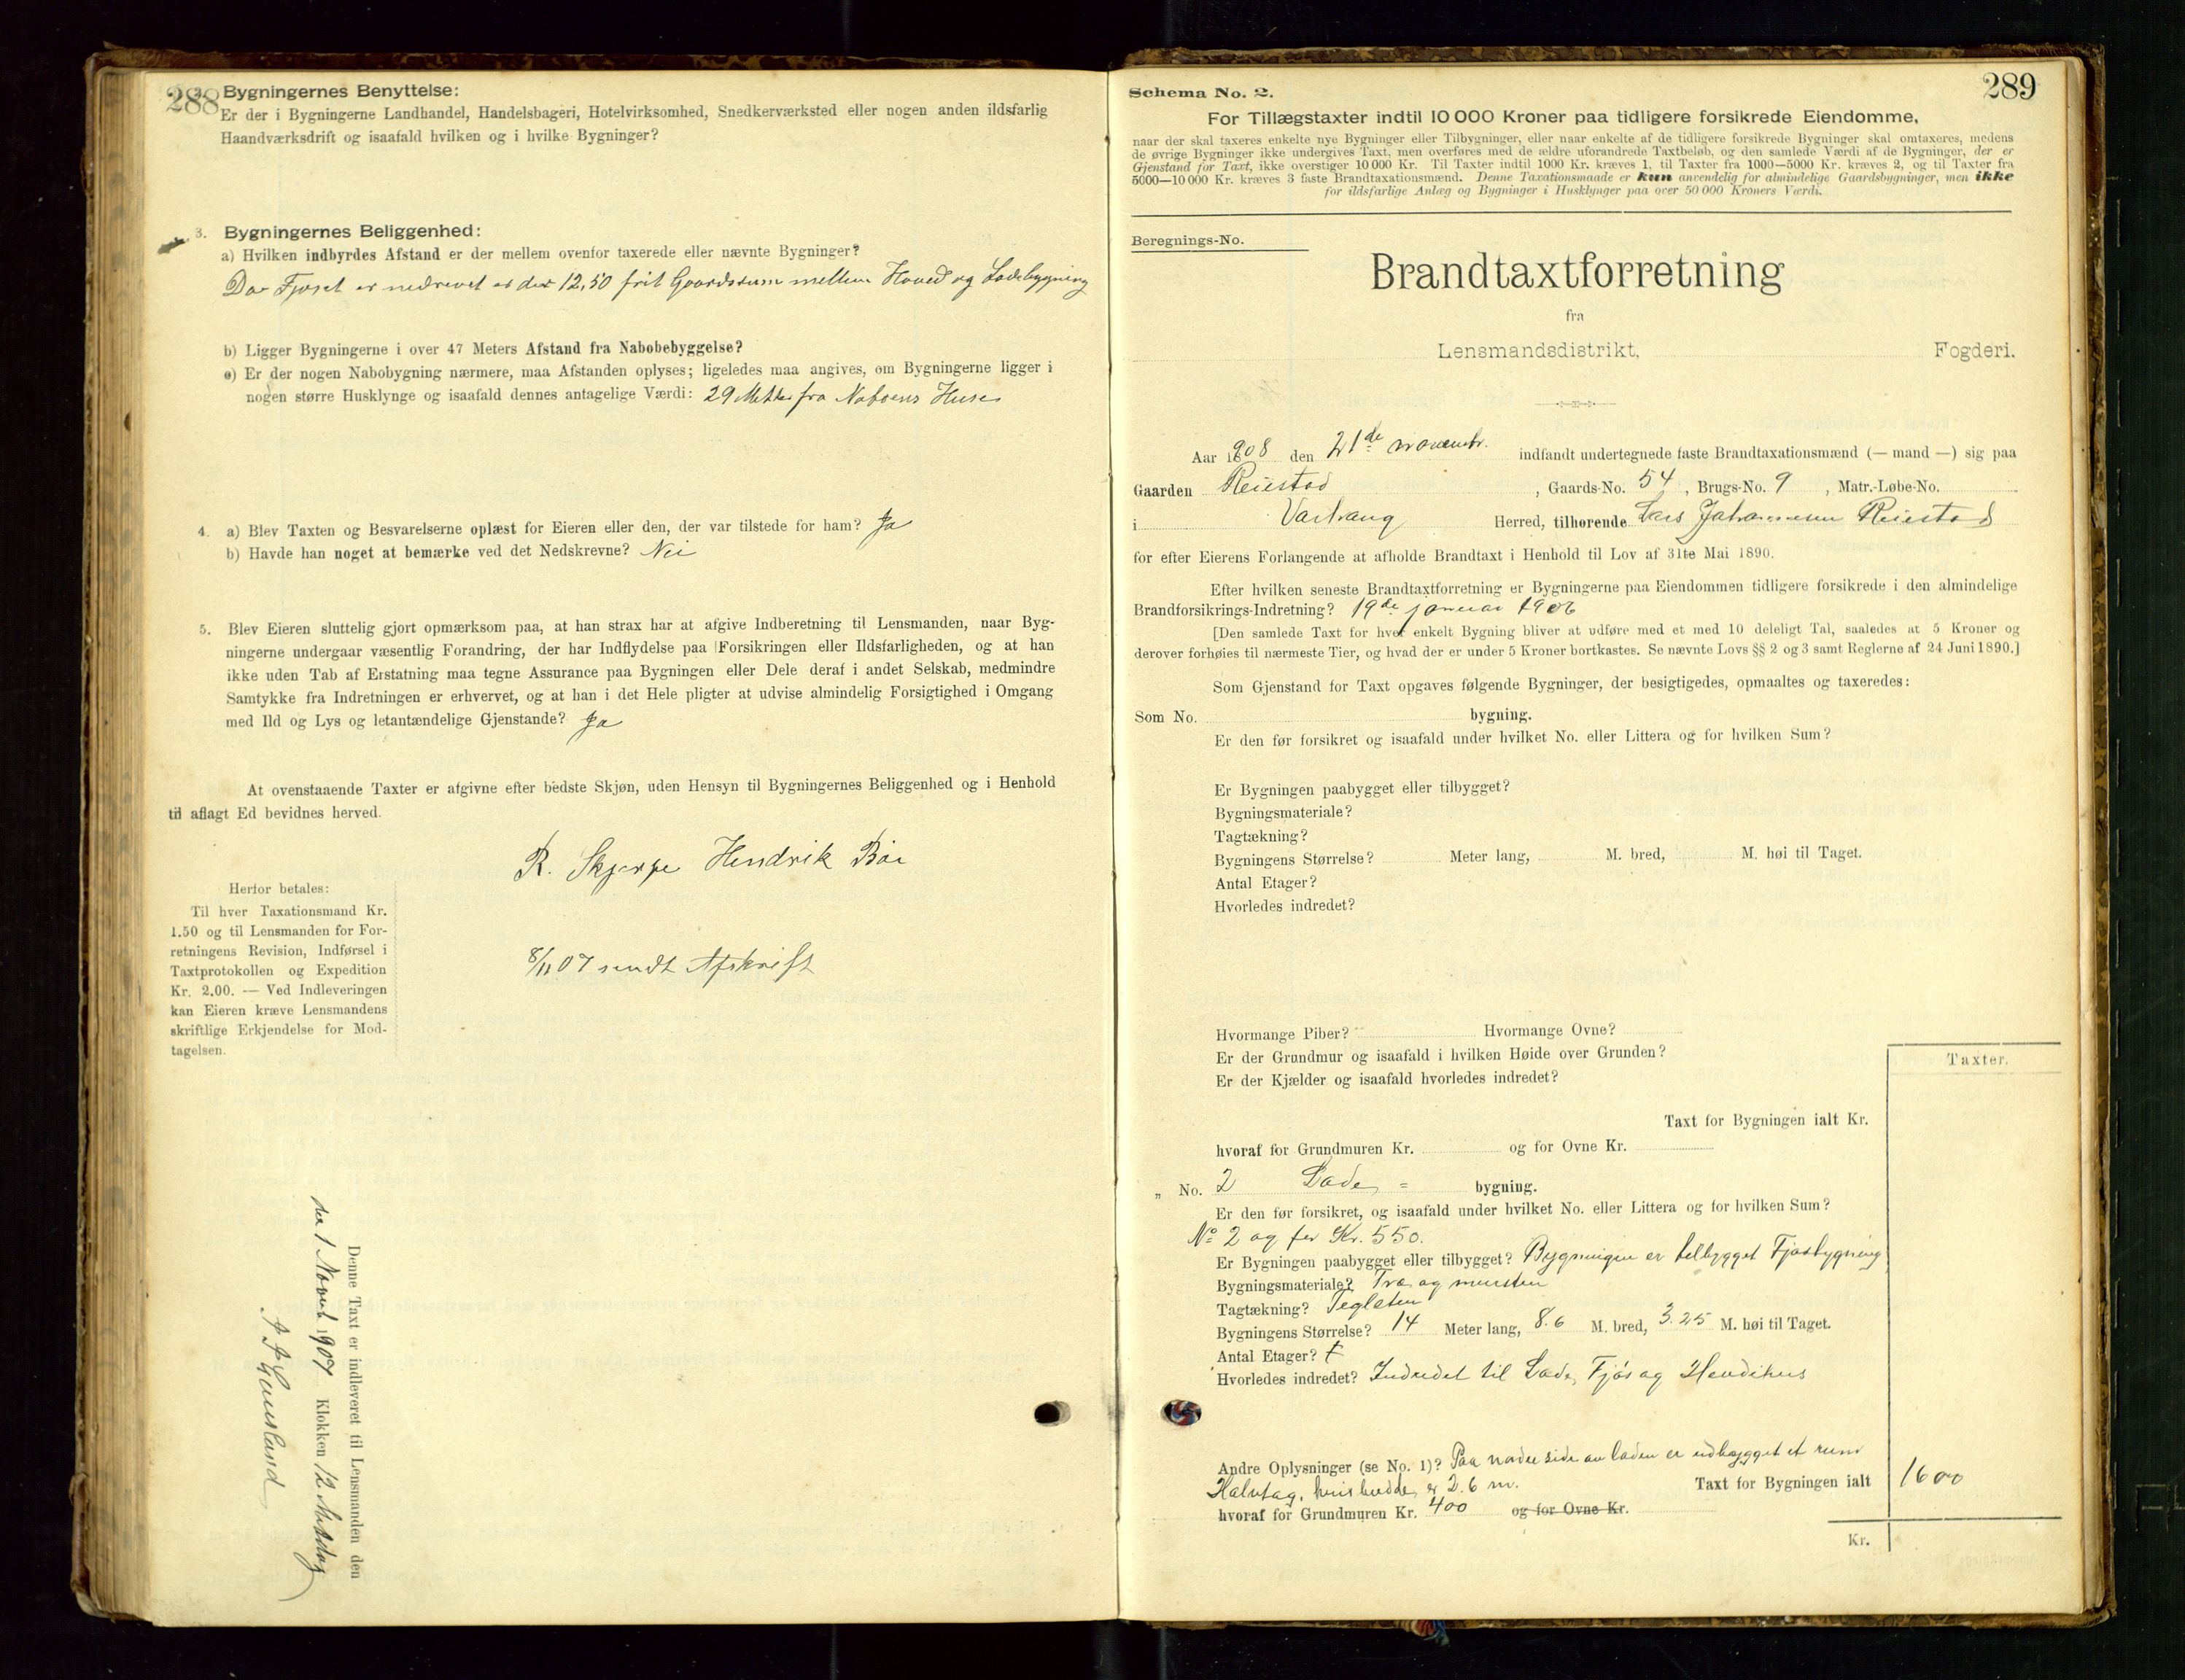 288
Bygningernes Benyttelse:
Er der i Bygningerne Landhandel, Handelsbageri, Hotelvirksomhed, Snedkerværksted eller nogen anden ildsfarlig
Haandværksdrift og isaafald hvilken og i hvilke Bygninger?
3. Bygningernes Beliggenhed:
a) Hvilken indbyrdes Afstand er der mellem ovenfor taxerede eller nævnte Bygninger?
Da Fjøset er nedrevet er der 12,50 frit Gaardsrum mellem Hoved og Ladebygning
b) Ligger Bygningerne i over 47 Meters Afstand fra Nabobebyggelse?
c) Er der nogen Nabobygning nærmere, maa Afstanden oplyses; ligeledes maa angives, om Bygningerne ligger i
nogen større Husklynge og isaafald dennes antagelige Værdi: 29 Meter fra Naboens Huse
4. a) Blev Taxten og Besvarelserne oplæst for Eieren eller den, der var tilstede for ham? Ja
b) Havde han noget at bemærke ved det Nedskrevne? Nei
5. Blev Eieren sluttelig gjort opmærksom paa, at han strax har at afgive Indberetning til Lensmanden, naar Byg-
ningerne undergaar væsentlig Forandring, der har Indflydelse paa Forsikringen eller Ildsfarligheden, og at han
ikke uden Tab af Erstatning maa tegne Assurance paa Bygningen eller Dele deraf i andet Selskab, medmindre
Samtykke fra Indretningen er erhvervet, og at han i det Hele pligter at udvise almindelig Forsigtighed i Omgang
med Ild og Lys og letantændelige Gjenstande? Ja
At ovenstaaende Taxter er afgivne efter bedste Skjøn, uden Hensyn til Bygningernes Beliggenhed og i Henhold
til aflagt Ed bevidnes herved.
R. Skjerpe Hendrik Bøe
Herfor betales:
Til hver Taxationsmand Kr.
1.50 og til Lensmanden for For-
retningens Revision, Indførsel i
Taxtprotokollen og Expedition
Kr. 2.00. — Ved Indleveringen
kan Eieren kræve Lensmandens
skriftlige Erkjendelse for Mod-
tagelsen.
8/11 07 sendt Afskrift
Denne Taxt er indleveret til Lensmanden den
1 Novmb 1907 Klokken 12 Middag
289
Schema No. 2.
For Tillægstaxter indtil 10 000 Kroner paa tidligere forsikrede Eiendomme,
naar der skal taxeres enkelte nye Bygninger eller Tilbygninger, eller naar enkelte af de tidligere forsikrede Bygninger skal omtaxeres, medens
de øvrige Bygninger ikke undergives Taxt, men overføres med de ældre uforandrede Taxtbeløb, og den samlede Værdi af de Bygninger, der er
Gjenstand for Taxt, ikke overstiger 10 000 Kr. Til Taxter indtil 1000 Kr. kræves 1, til Taxter fra 1000—5000 Kr. kræves 2, og til Taxter fra
5000—10 000 Kr. kræves 3 faste Brandtaxationsmænd. Denne Taxationsmaade er kun anvendelig for almindelige Gaardsbygninger, men ikke
for ildsfarlige Anlæg og Bygninger i Husklynger paa over 50 000 Kroners Værdi.
Beregnings-No.
Brandtaxtforretning
fra
Lensmandsdistrikt, Fogderi.
Aar 1908 den 21de novembr. indfandt undertegnede faste Brandtaxationsmænd (— mand —) sig paa
Gaarden Reiestad, Gaards-No. 54, Brugs-No. 9, Matr.-Løbe-No.
i Varhaug Herred, tilhørende Lars Johannesen Reiestad
for efter Eierens Forlangende at afholde Brandtaxt i Henhold til Lov af 31te Mai 1890.
Efter hvilken seneste Brandtaxtforretning er Bygningerne paa Eiendommen tidligere forsikrede i den almindelige
Brandforsikrings-Indretning? 19de januar 1906
[Den samlede Taxt for hver enkelt Bygning bliver at udføre med et med 10 deleligt Tal, saaledes at 5 Kroner og
derover forhøies til nærmeste Tier, og hvad der er under 5 Kroner bortkastes. Se nævnte Lovs §§ 2 og 3 samt Reglerne af 24 Juni 1890.]
Som Gjenstand for Taxt opgaves følgende Bygninger, der besigtigedes, opmaaltes og taxeredes:
Som No. bygning.
Er den før forsikret og isaafald under hvilket No. eller Littera og for hvilken Sum?
Er Bygningen paabygget eller tilbygget?
Bygningsmateriale?
Tagtækning?
Bygningens Størrelse? Meter lang, M. bred, M. høi til Taget.
Antal Etager?
Hvorledes indredet?
Hvormange Piber? Hvormange Ovne?
Er der Grundmur og isaafald i hvilken Høide over Grunden?
Er der Kjælder og isaafald hvorledes indredet?
Taxter.
Taxt for Bygningen ialt Kr.
hvoraf for Grundmuren Kr. og for Ovne Kr.
„ No. 2 Lade = bygning.
Er den før forsikret, og isaafald under hvilket No. eller Littera og for hvilken Sum?
No 2 og for Kr. 550.
Er Bygningen paabygget eller tilbygget? Bygningen er tilbygget Fjøsbygning
Bygningsmateriale? Træ og mursten
Tagtækning? Teglsten
Bygningens Størrelse? 14 Meter lang, 8.6 M. bred, 3.25 M. høi til Taget.
Antal Etager? 1
Hvorledes indredet? Indredet til Lade, Fjøs og
Andre Oplysninger (se No. 1)? Paa nordre side av laden er udbygget et rum
Halvtag, hvis bredde er 2.6 m. Taxt for Bygningen ialt 1600
hvoraf for Grundmuren Kr. 400 og for Ovne Kr.
Kr.